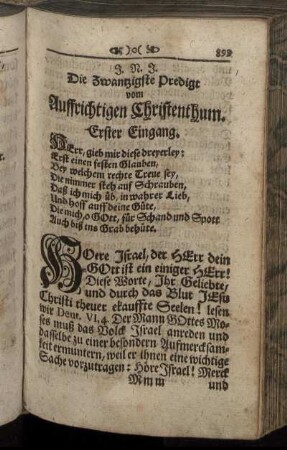 )o( 899
J. N. J.
Die Zwantzigste Predigt
vom
Auffrichtigen Christenthum.
Erster Eingang.
HErr, gieb mir diese dreyerley:
Erst einen festen Glauben,
Bey welchem rechte Treue sey,
Die nimmer steh auf Schrauben,
Daß ich mich üb, in wahrer Lieb,
Und hoff auff deine Güte,
Die mich, o GOtt, für Schand und Spott
Auch biß ins Grab behüte.
HOere Israel, der HErr dein
GOtt ist ein einiger HErr!
Diese Worte, Ihr Geliebte,
und durch das Blut JEsu
Christi theuer erkauffte Seelen! lesen
wir Deut. VI, 4. Der Mann GOttes Mo-
ses muß das Volck Israel anreden und
dasselbe zu einer besondern Aufmercksam-
keit ermuntern, weil er ihnen eine wichtige
Sache vorzutragen: Höre Israel! Merck
Mmm und